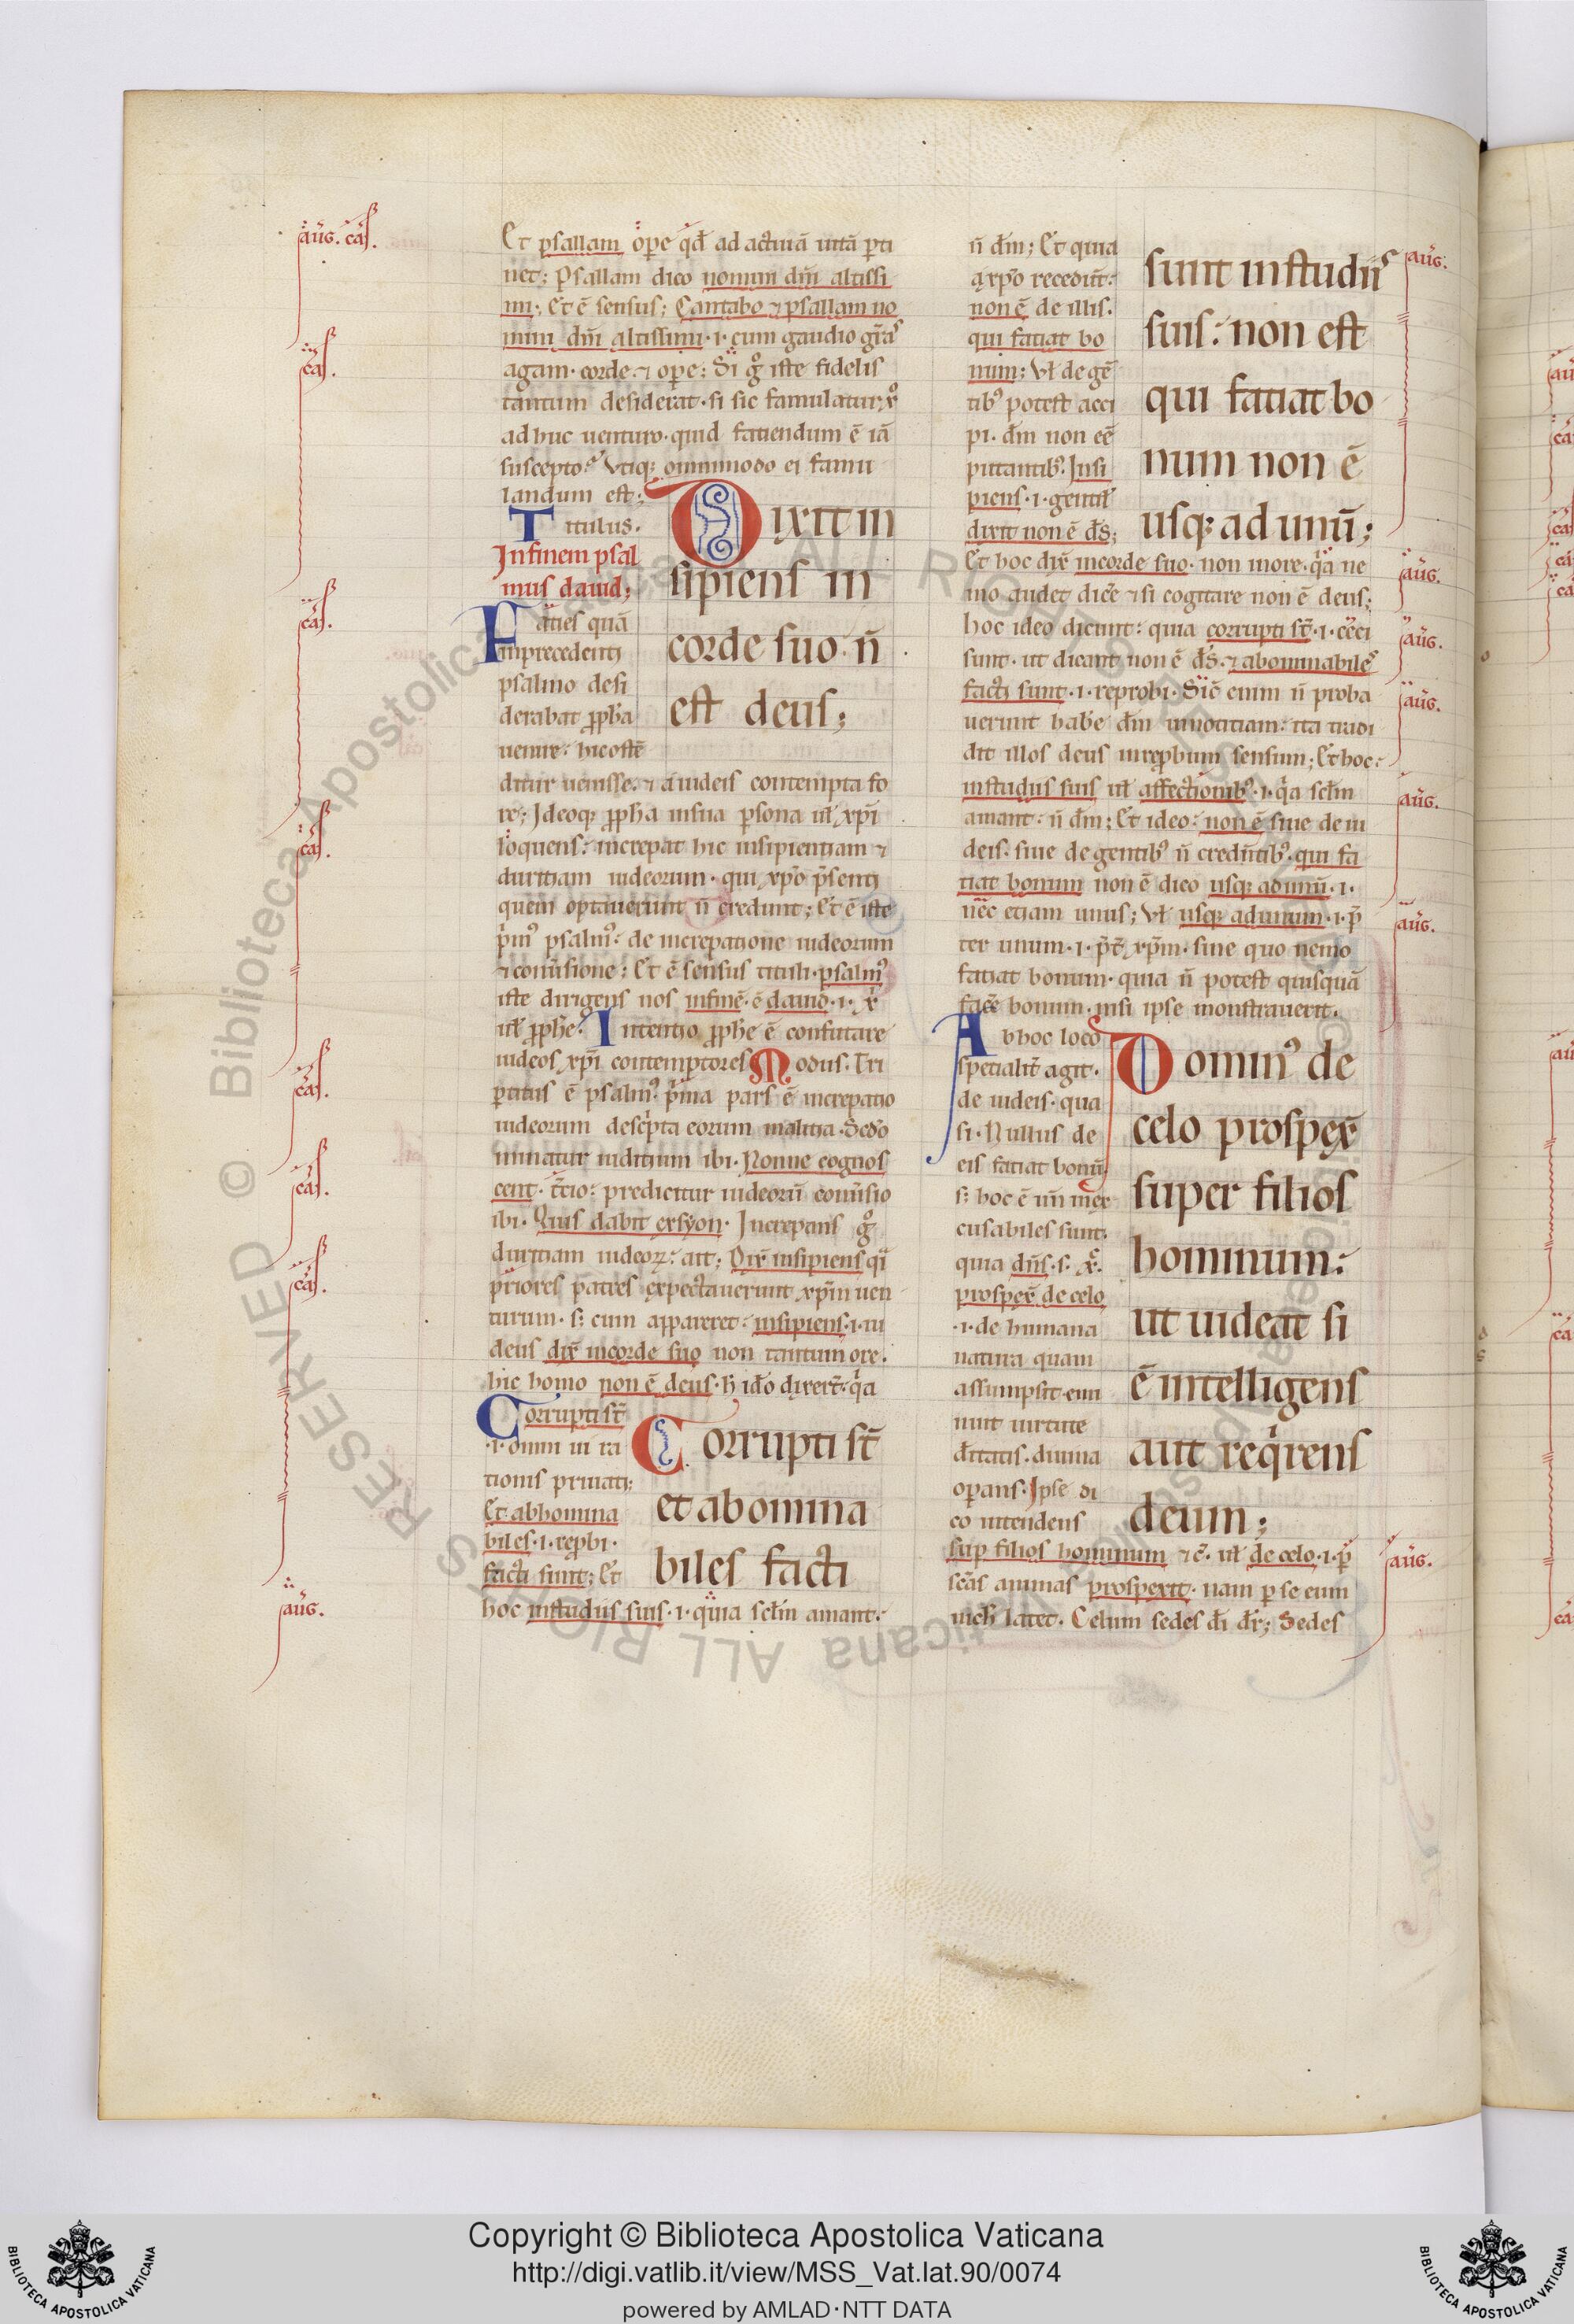 Et psallam oꝑe qđ ad actiuā uitā ꝑti
net; Psallam dico nomini dn̄i altissi
mi; Et ē sensus; Cantabo ⁊ psallam no
mini dn̄i altissimi ·i· cum gaudio gr̄as
agam· corde· ⁊ oꝑe; Si gͦ iste fidelis
tantum desiderat· si sic famulatur xͦ
adhuc uenturo· quid fatiendum ē iā
suscepto? Vtiqꝫ omnimodo ei famu
landum est;
Titulus.
In finem psal
mus dauid;
Faties quā
in precedenti
psalmo desi
derabat ꝓph̄a
uenire: hic ostē
ditur uenisse· ⁊ a iudeis contempta fo
re; Ideoqꝫ ꝓph̄a in sua ꝑsona ul̄ xp̄i
loquens: increpat hic insipientiam ⁊
duritiam iudeorum· qui xp̄o p̄senti
quem optauerunt n̄ credunt; Et ē iste
p̓mꝰ psalmꝰ: de increpatione iudeorum
⁊ conūsione; Et ē sensus tituli· psalmꝰ
iste dirigens nos in finē· ē dauid ·i· x̄
ul̄ ꝓph̄e: Intentio ꝓph̄e ē confutare
iudeos xp̄i contemptores Modus. Tri
ꝑtitus ē psalmꝰ: p̓ma pars ē increpatio
iudeorum desc̓pta eorum malitia· Sc̄do
minatur iuditium ibi· Nonne cognos
cent· t̄cio: predicitur iudeorū conūsio
ibi· Quis dabit ex syon· Increpans gͦ
duritiam iudeoꝝ: ait; Dix̄ insipiens qͥ
priores patres expectauerunt xp̄m uen
turum· sꝫ cum appareret: insipiens ·i· iu
deus dix̄ in corde suo non tantum ore.
hic homo non ē deus· h̄ id̄o dixert̄: qͣa
Corrupti st̄
·i· omni ui ra
tionis priuati;
Et abhomina
biles ·i· reꝓbi·
facti sunt; Et
hoc in studiis suis ·i· quia scl̄m amant:
Dixit in
sipiens in
corde suo n̄
est deus;
Corrupti st̄
et abomina
biles facti
n̄ dm̄; Et quia
a xp̄o recedūt:
non ē de illis.
qui fatiat bo
num; Vl̄ de gē
tibꝰ potest acci
pi· dm̄ non eē
putantibꝰ. Insi
piens ·i· gentil̄
dixit non ē ds̄;
sunt in studiis
suis: non est
qui fatiat bo
num non ē
usqꝫ ad unū;
Et hoc dix̄ in corde suo· non more· qͣa ne
mo audet dic̄e ⁊ si cogitare non ē deus;
hoc ideo dicunt: quia corrupti st̄ ·i· ceci
sunt· ut dicant non ē ds̄· ⁊ abominabiles
facti sunt ·i· reprobi· Sic̄ enim n̄ proba
uerunt habe dm̄ in notitiam: ita tradi
dit illos deus in reꝓbum sensum; Et hoc:
in studiis suis ul̄ affectionibꝰ ·i· qͣa scl̄m
amant: n̄ dm̄; Et ideo: non ē siue de iu
deis· siue de gentibꝰ n̄ credn̄tibꝰ· qui fa
tiat bonum non ē dico usqꝫ ad unū ·i·
nec etiam unus; Vl̄ usqꝫ ad unum ·i· p̄
ter unum ·i· p̄t̄ xp̄m· sine quo nemo
fatiat bonum· quia n̄ potest quisquā
fac̄e bonum· nisi ipse monstrauerit.
Ab hoc loco
spetialit̄ agit·
de iudeis· qua
si· Nullus de
eis fatiat bonū
sꝫ hoc ē
cusabiles sunt·
quia dn̄s ·s· x̄·
prospex̄ de celo
·i· de humana
natura quam
assumpsit· emi
nuit uirtute
diītatis· diuina
oꝑans· Ipse
co intendens
Dominꝰ de
celo prospex̄
super filios
hominum:
ut uideat si
ē intelligens
aut reqͥrens
deum;
suꝑ filios hominum ⁊c̄· ul̄ de celo ·i· ꝑ
scās animas prospexit· nam ꝑ se eum
nich̄ latet· Celum sedes d̄i dr̄; Sedes
aūg. cās.
cās.
cās.
cās.
cās.
cās.
cās.
aūg.
aūg.
aūg.
aūg.
aūg.
aūg.
aūg.
aūg.
© Biblioteca Apostolica Vaticana ALL RIGHTS RESERVED
BIBLIOTECA APOSTOLICA VATICANA
Copyright © Biblioteca Apostolica Vaticana
http://digi.vatlib.it/view/MSS_Vat.lat.90/0074
powered by AMLAD·NTT DATA
BIBLIOTECA APOSTOLICA VATICANA